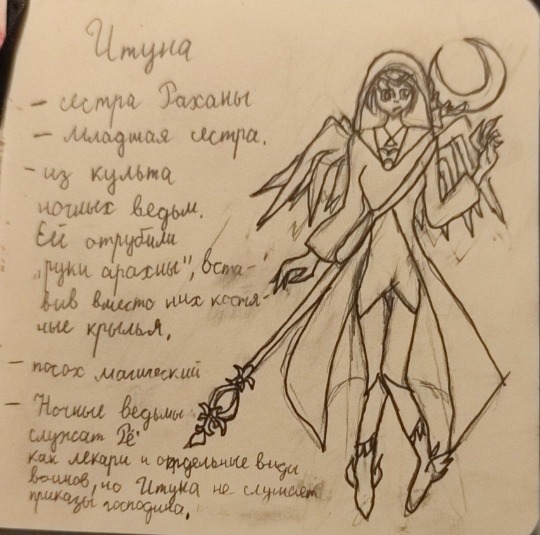 Итуна
- сестра Раханы
- Младшая сестра.
- из культа
ночных ведьм.
Ей отрубили
„руки арахны", вста-
вив вместо них костя-
ные крылья.
- посох магический
- Ночные ведьмы
служат Рё
как лекари и отдельные види
воинов, но Итуна не слушает
приказы господина.